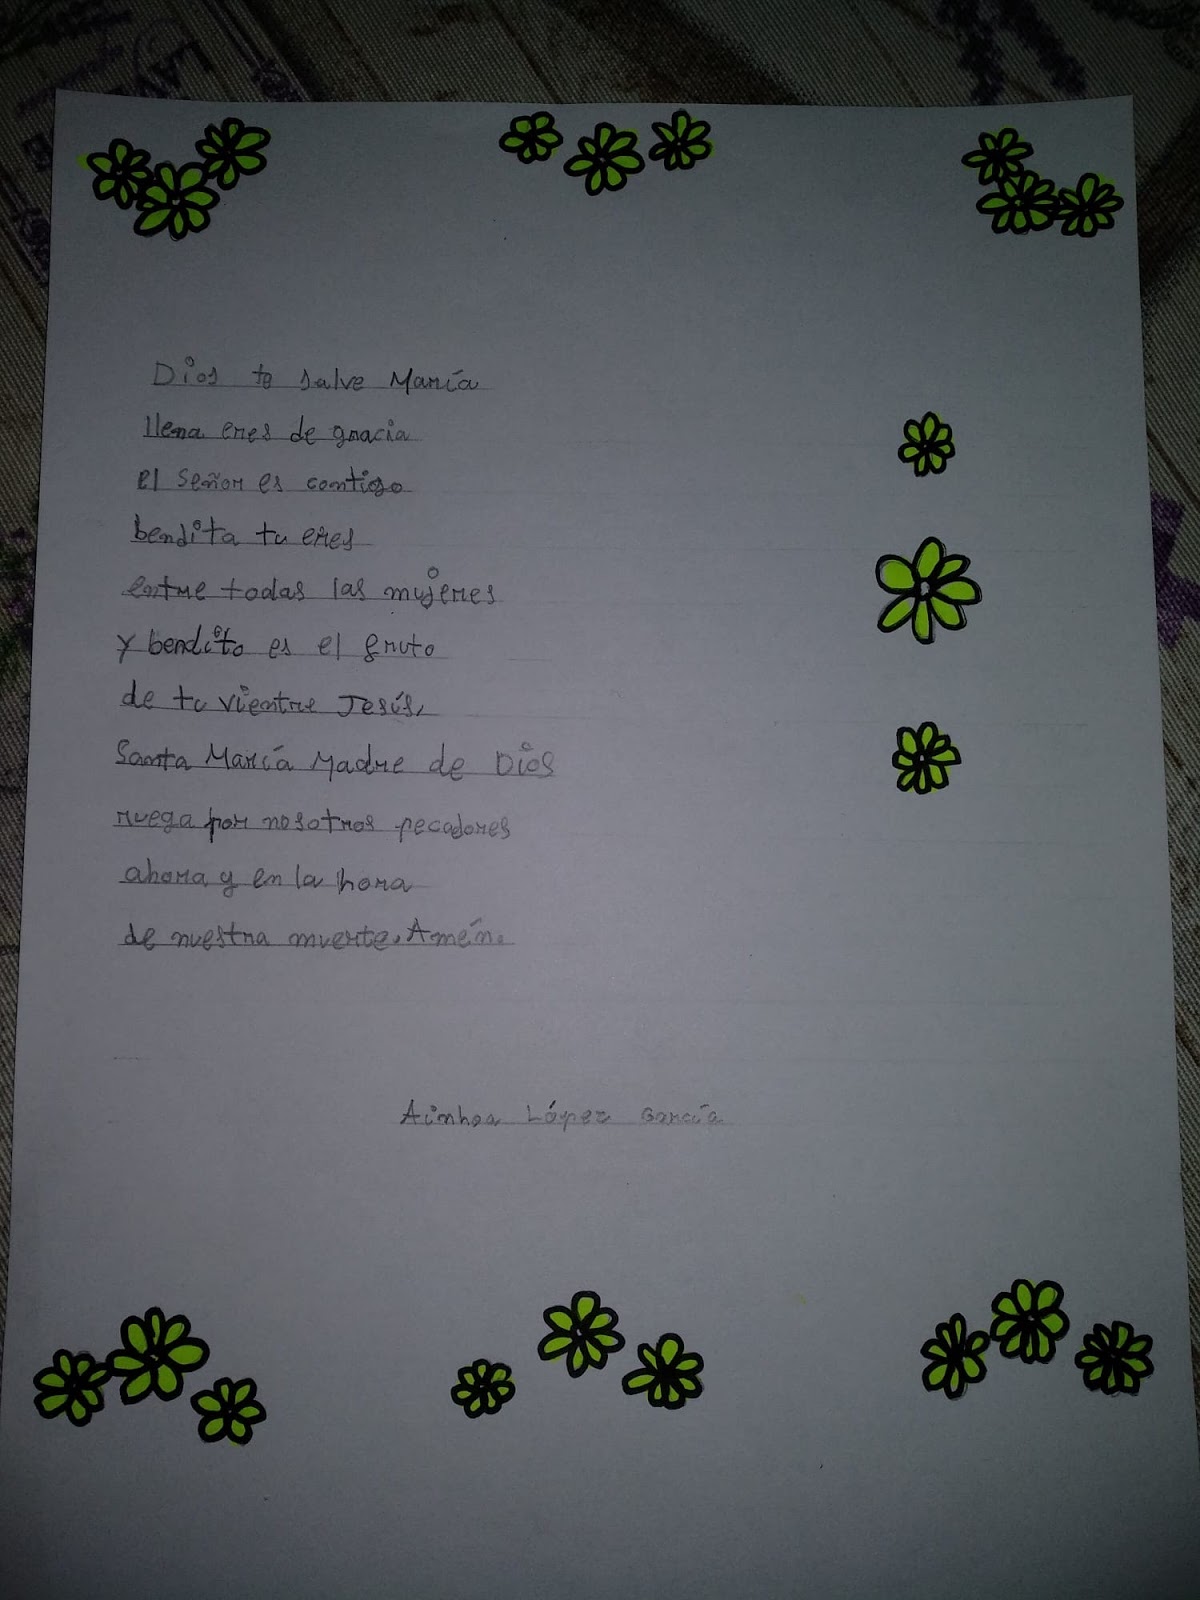 Dios te salve María
llena eres de gracia
el Señor es contigo
bendita tu eres
entre todas las mujeres
y bendito es el fruto
de tu vientre Jesús,
Santa María Madre de Dios
ruega por nosotros pecadores
ahora y en la hora
de nuestra muerte. Amén.
Ainhoa López García